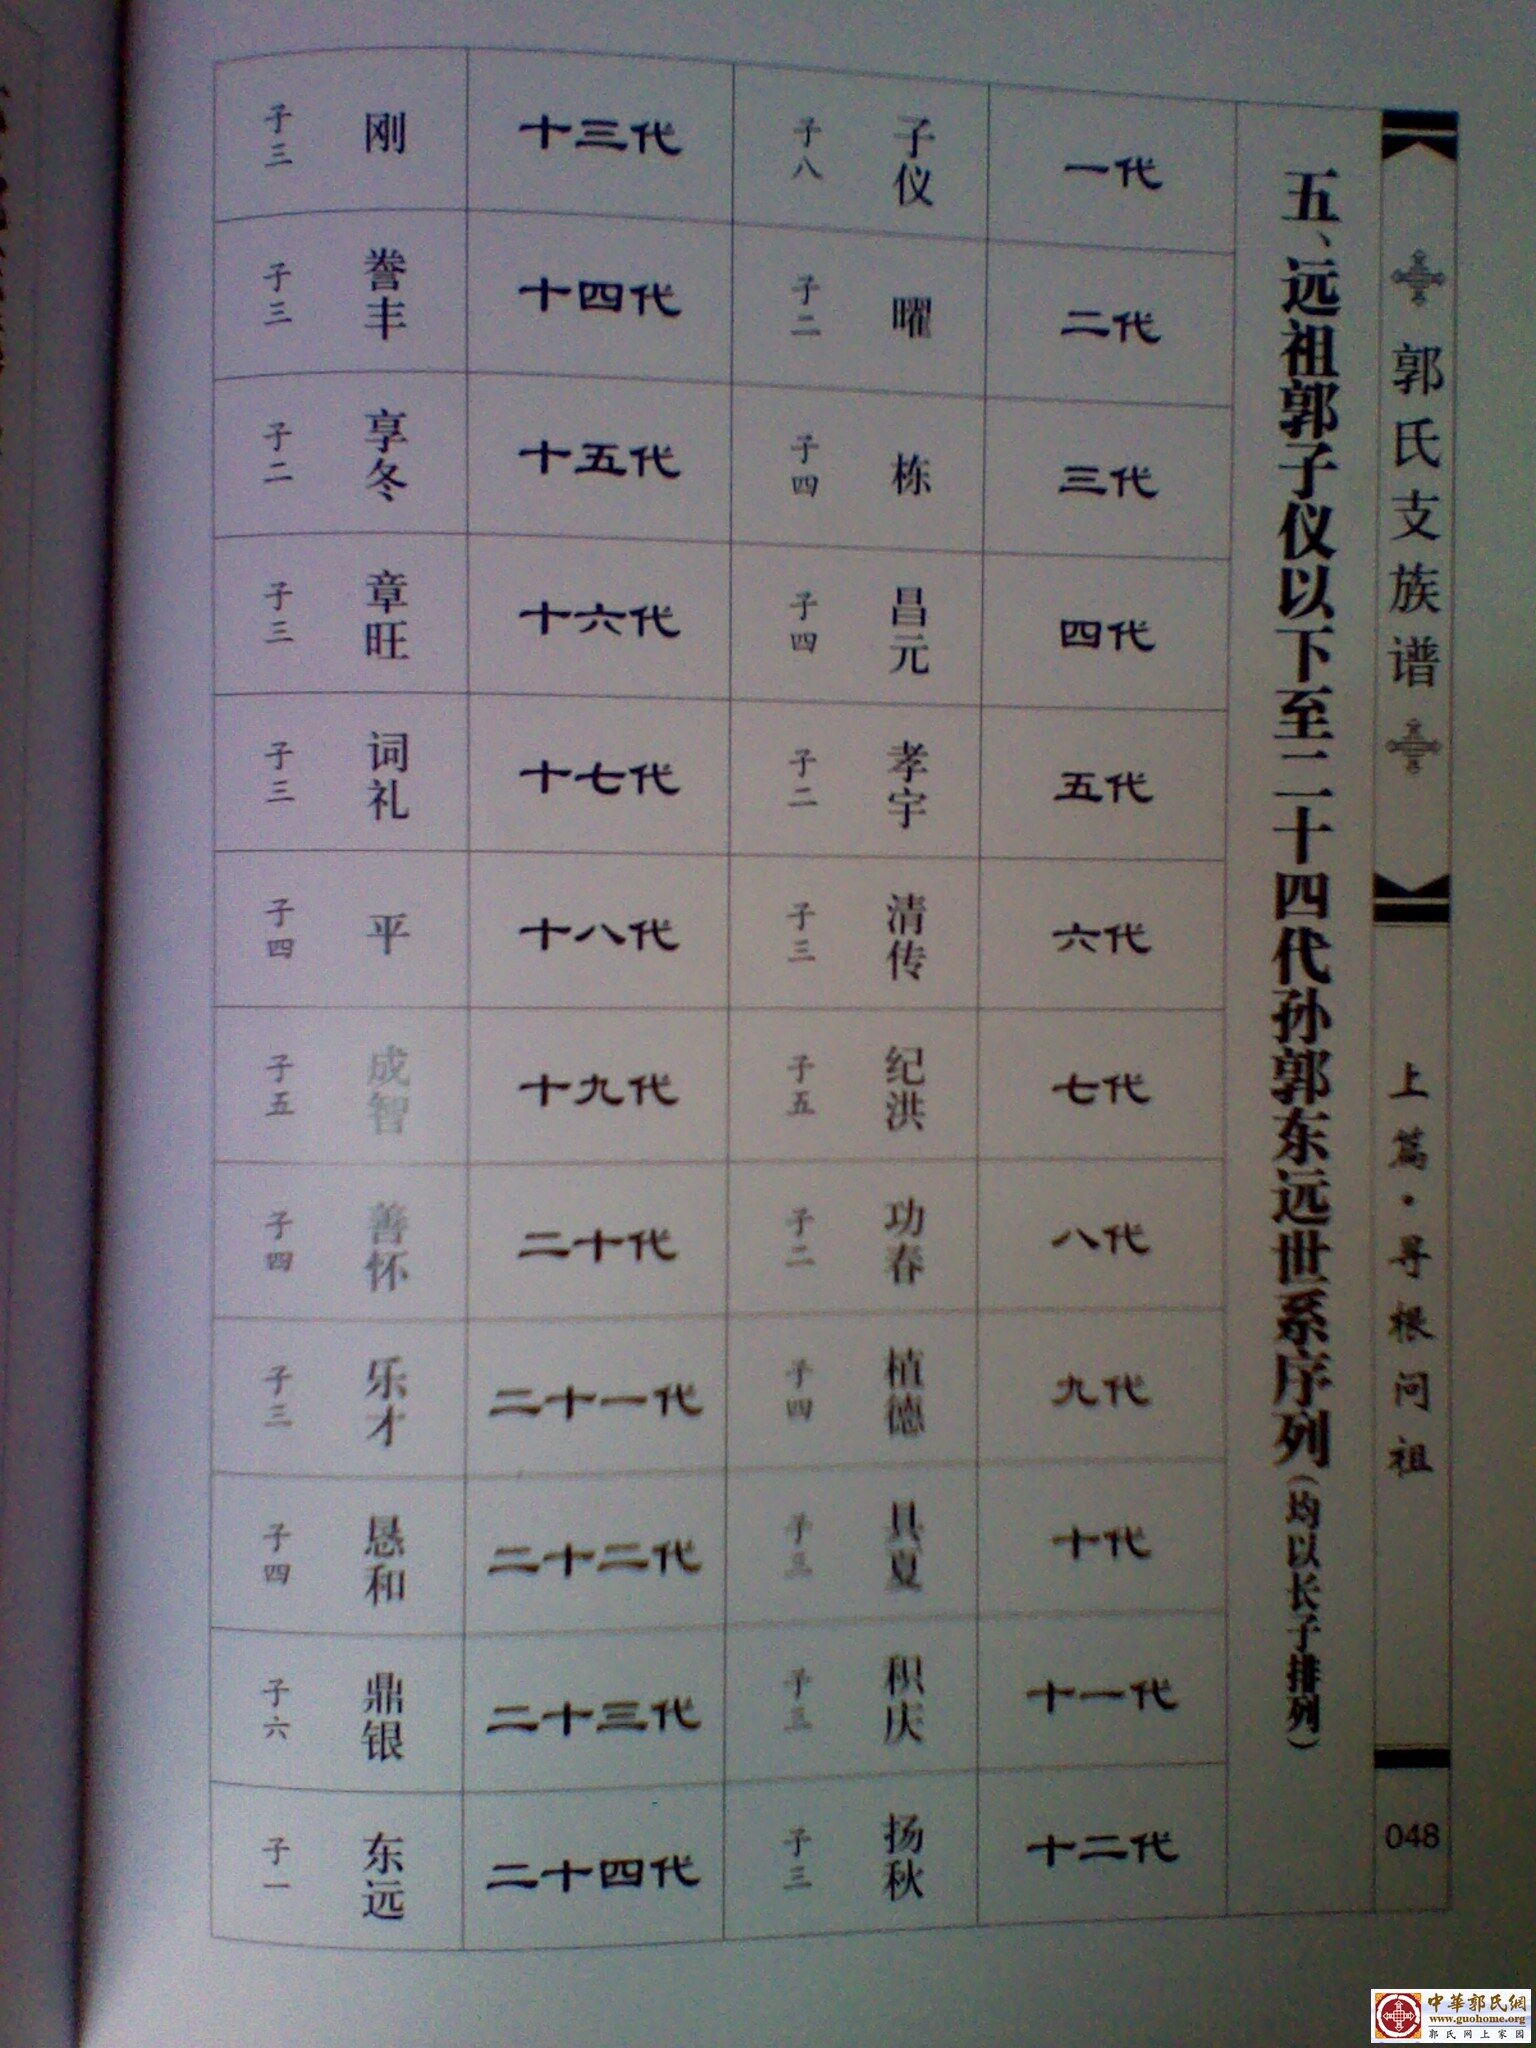 郭氏支族谱
上篇·寻根问祖
048
五、远祖郭子仪以下至二十四代孙郭东远世系序列(均以长子排列)
一代 子仪 子八
二代 曜 子二
三代 栋 子四
四代 昌元 子四
五代 孝宇 子二
六代 清传 子三
七代 纪洪 子五
八代 功春 子二
九代 植德 子四
十代 具夏
十一代 积庆
十二代 扬秋 子三
十三代 刚 子三
十四代 誊丰 子三
十五代 享冬 子二
十六代 章旺 子三
十七代 词礼 子三
十八代 平 子四
十九代 成智 子五
二十代 善怀 子四
二十一代 乐才 子三
二十二代 恳和 子四
二十三代 鼎银 子六
二十四代 东远 子一
中華郭氏網
www.guohome.org
郭氏网上家园